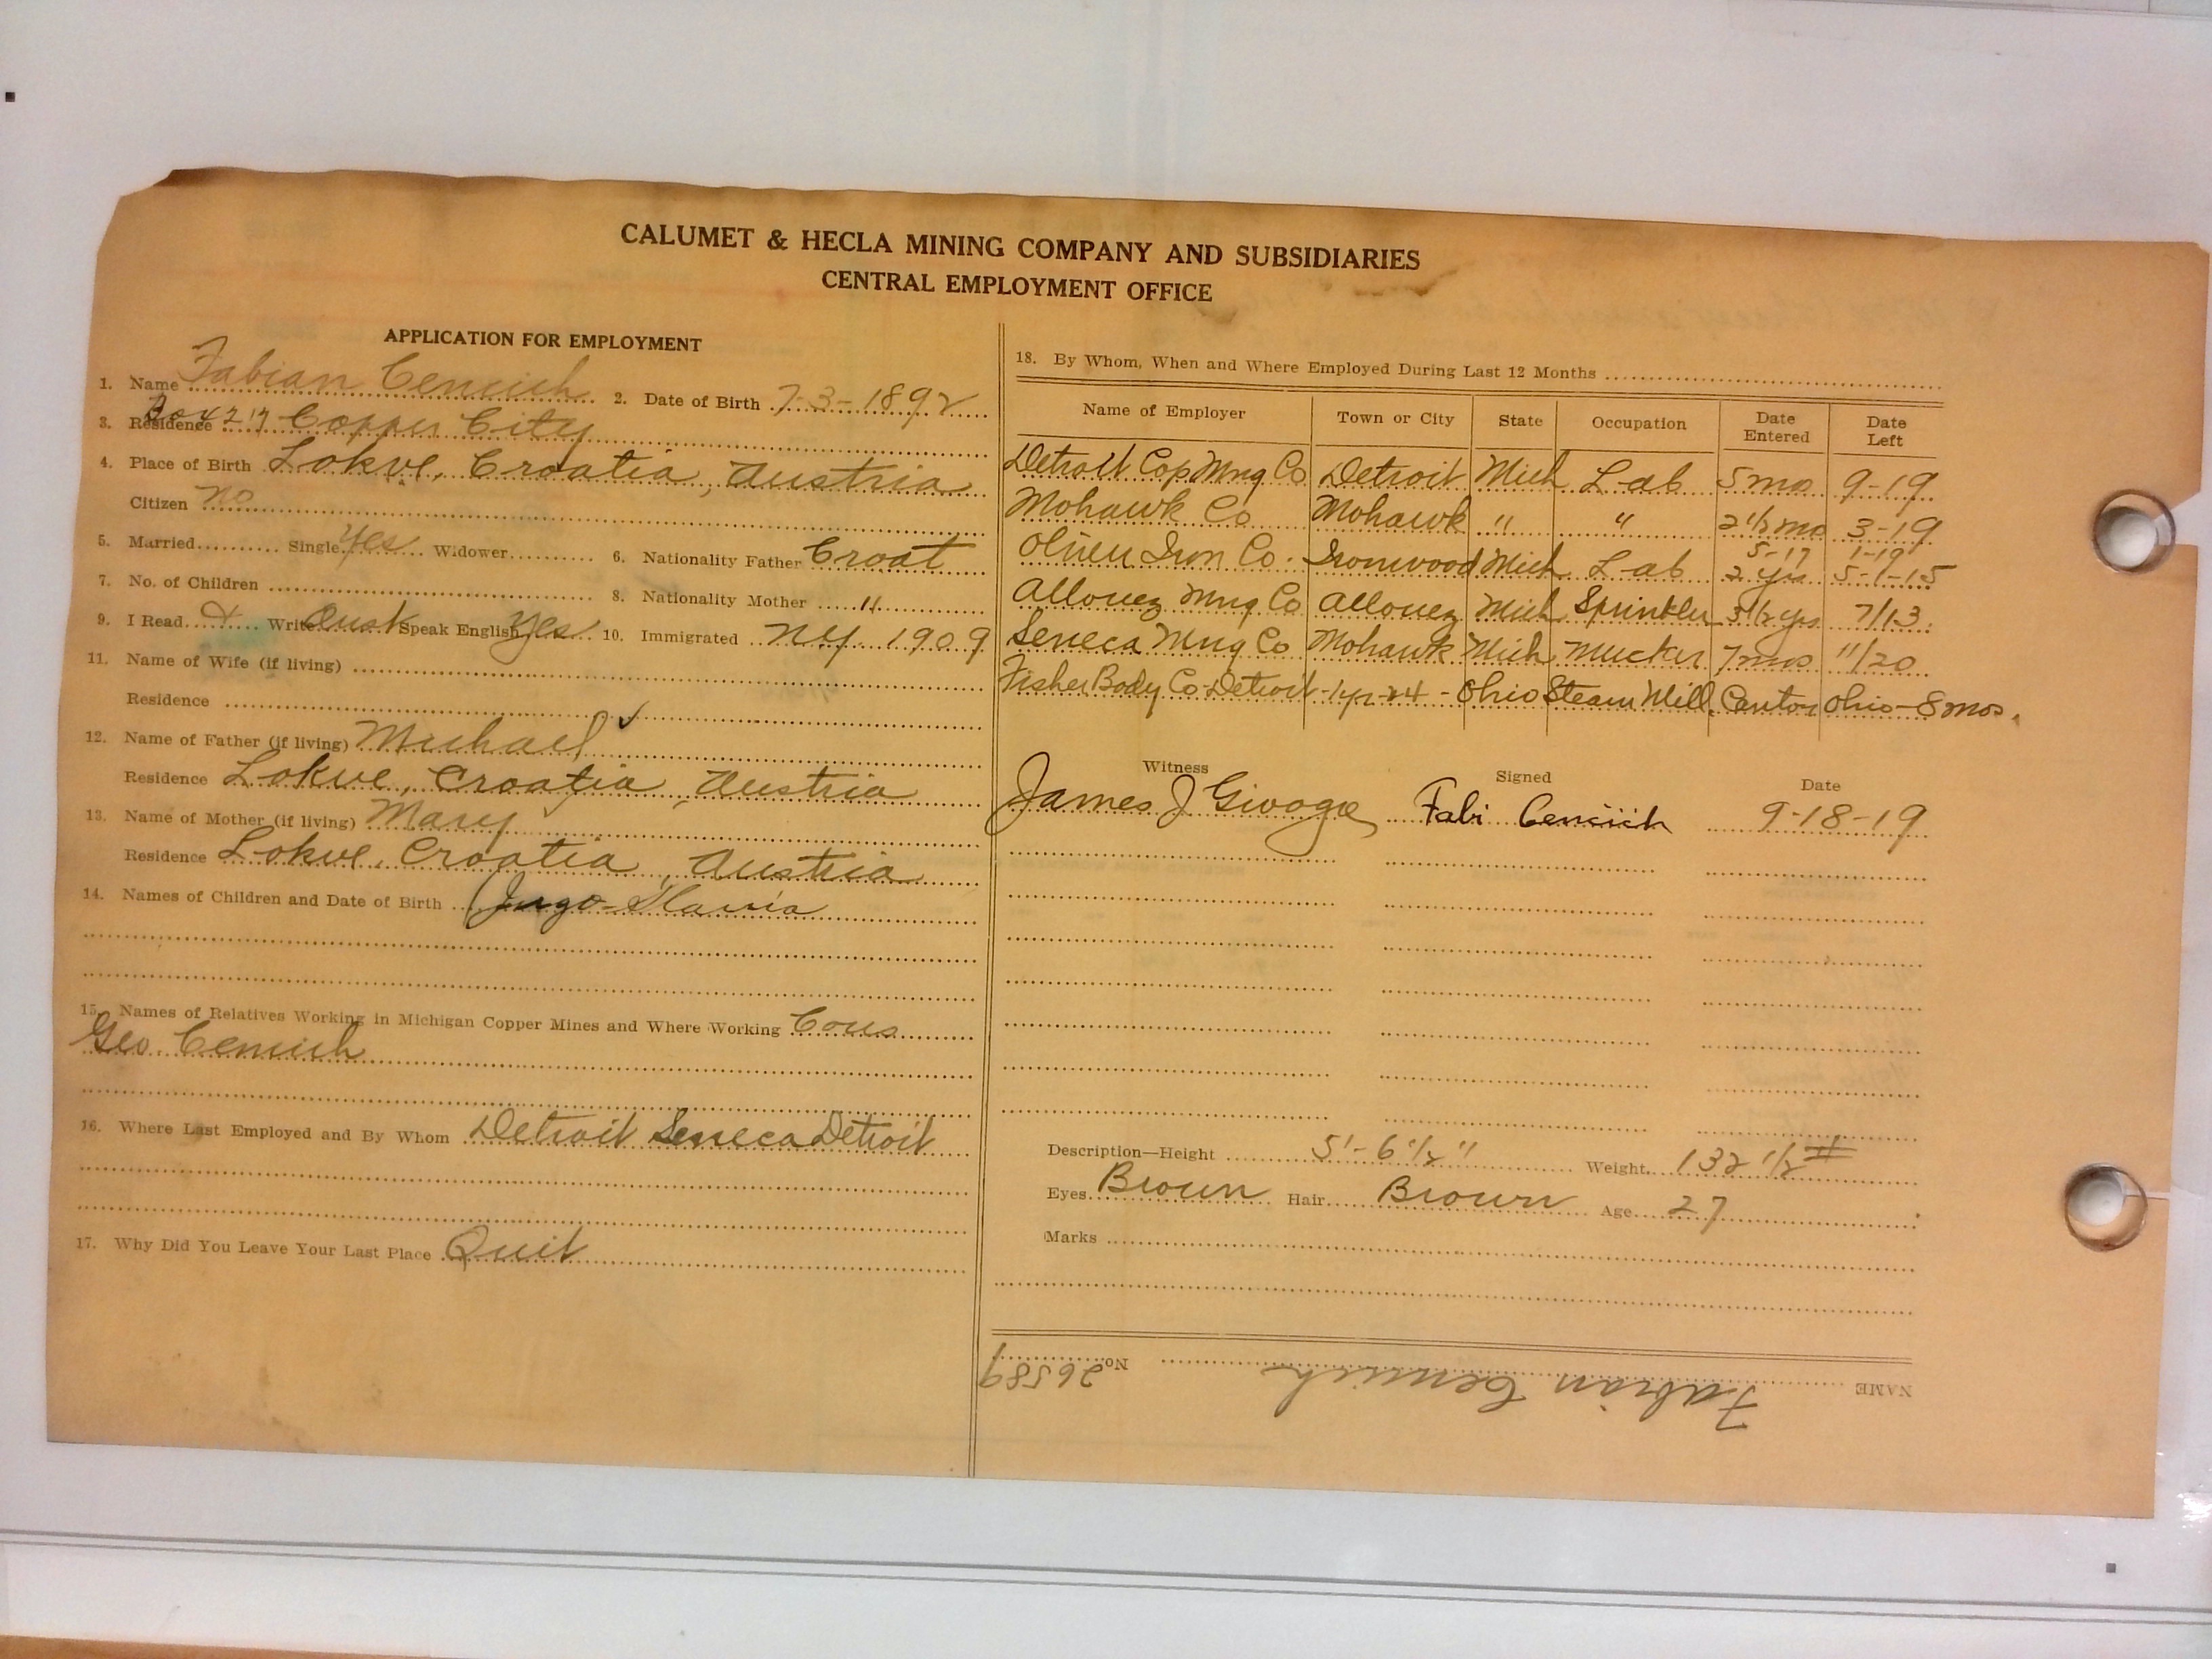 CALUMET & HECLA MINING COMPANY AND SUBSIDIARIES
CENTRAL EMPLOYMENT OFFICE
APPLICATION FOR EMPLOYMENT
1. Name Fabian Cencich 2. Date of Birth 7-3-1892
3. Residence Box 217 Copper City
4. Place of Birth Lokve, Croatia, Austria
Citizen no
5. Married Single yes Widower 6. Nationality Father Croat
7. No. of Children 8. Nationality Mother "
9. I Read & Write Aust Speak English yes 10. Immigrated NY. 1909
11. Name of Wife (if living)
Residence
12. Name of Father (if living) Michael ✓
Residence Lokve, Croatia, Austria
13. Name of Mother (if living) Mary
Residence Lokve, Croatia, Austria
14. Names of Children and Date of Birth (Jugo-Slavia
15. Names of Relatives Working in Michigan Copper Mines and Where Working Cous
Geo. Cencich
16. Where Last Employed and By Whom Detroit Seneca Detroit
17. Why Did You Leave Your Last Place Quit
18. By Whom, When and Where Employed During Last 12 Months
Name of Employer Town or City State Occupation Date Entered Date Left
Detroit Cop Mng Co Detroit Mich Lab 5 mo 9-19
Mohawk Co Mohawk " " 2 1/2 mo 3-19
5-17 1-19
Oliver Iron Co. Ironwood Mich Lab 2 yrs 5-1-15
Allouez Mng Co Allouez Mich Sprinkler 3 1/2 yrs 7/13
Seneca Mng Co Mohawk Mich Mucker 7 mos 11/20
Fisher Body Co-Detroit-1yr-24-Ohio Steam Mill, Canton Ohio-8 mos.
Witness Signed Date
James J Fabi Cencich 9-18-19
Description—Height 5'-6 1/2" Weight 132 1/2 #
Eyes Brown Hair Brown Age 27
Marks
NAME Fabian Cencich No. 26589